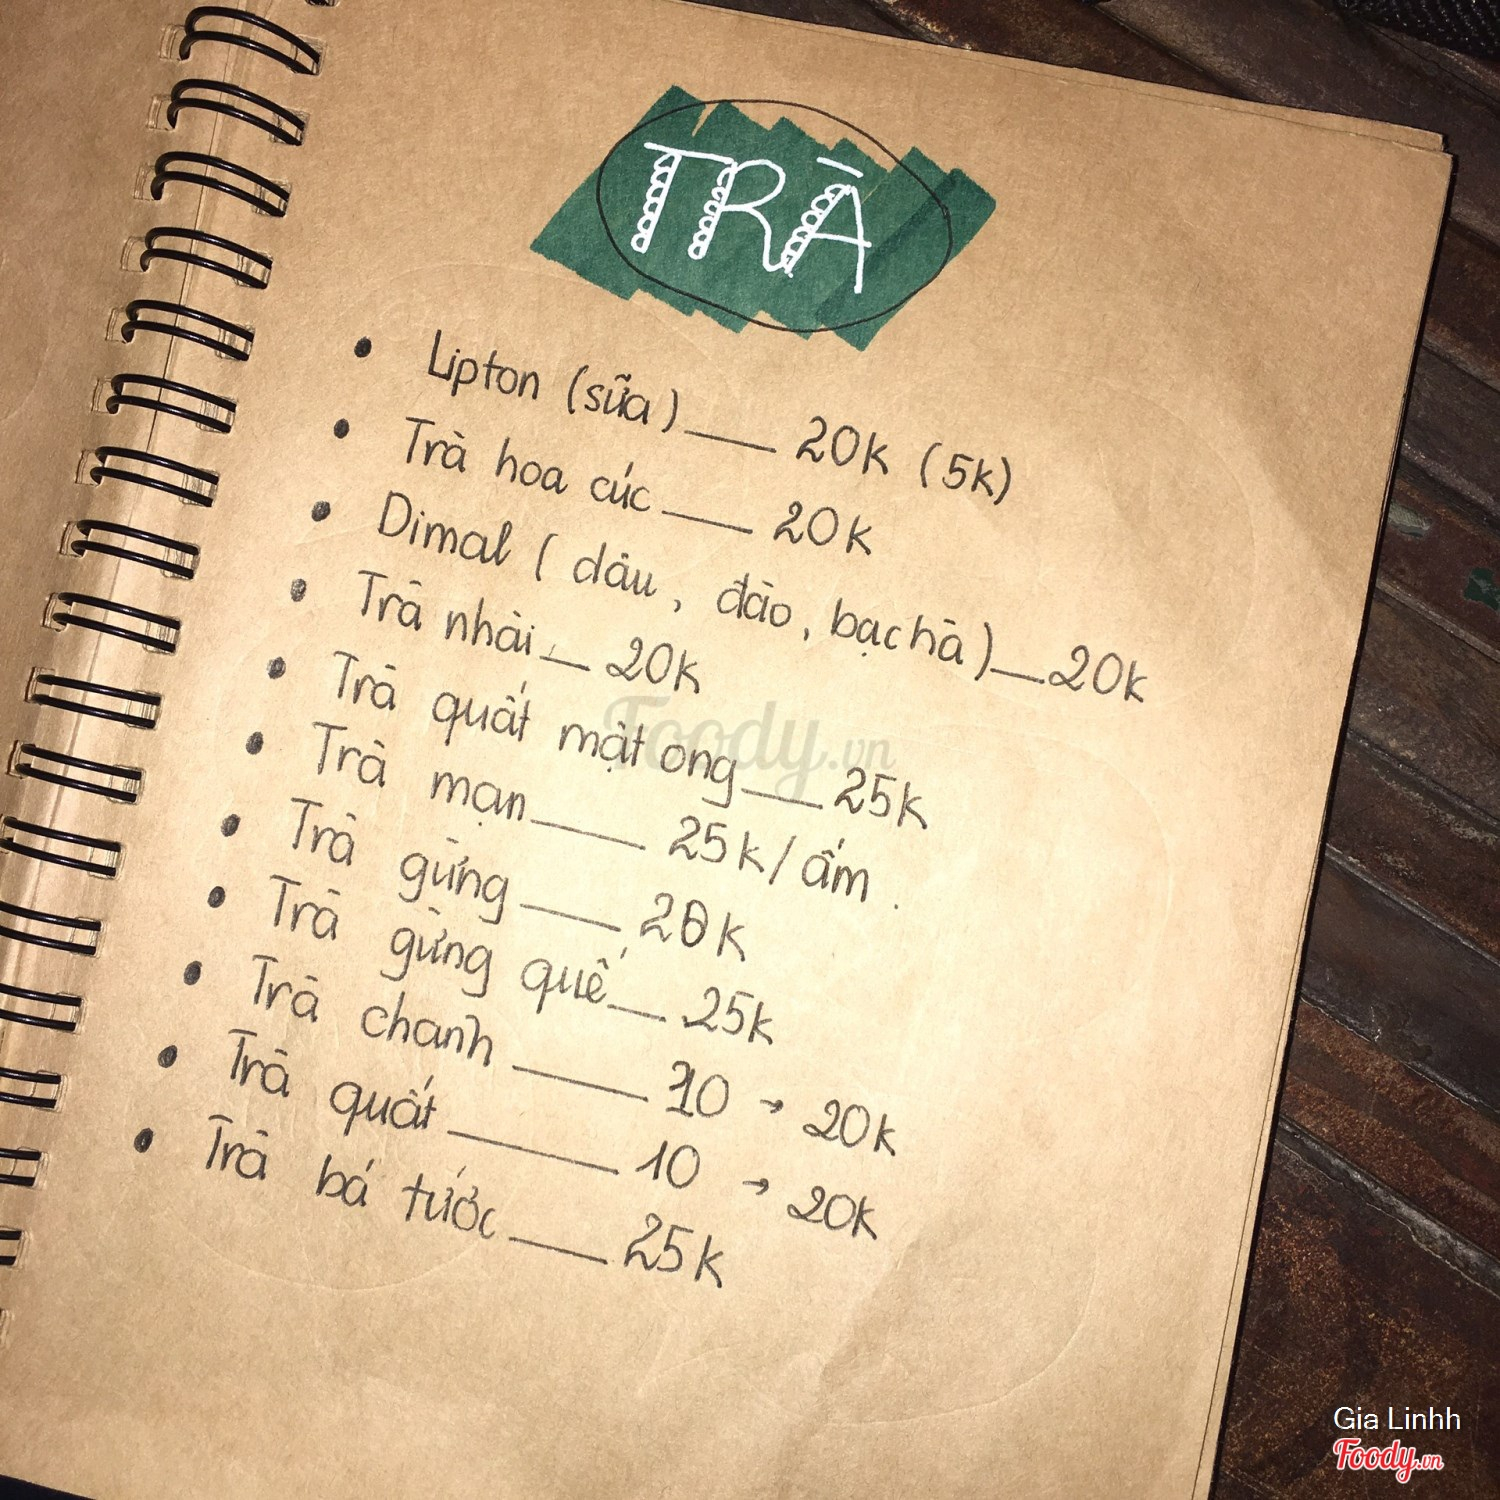 TRÀ
• Lipton (sữa) ___ 20k (5k)
• Trà hoa cúc ___ 20k
• Dimal ( dâu, đào, bạc hà) __ 20k
• Trà nhài __ 20k
• Trà quất mật ong ___ 25k
• Trà mạn ___ 25k/ấm.
• Trà gừng ___ 20k
• Trà gừng quế __ 25k
• Trà chanh ____ 10 → 20k
• Trà quất _____ 10 → 20k
• Trà bá tước ___ 25k
Foody.vn
Gia Linhh
Foody.vn